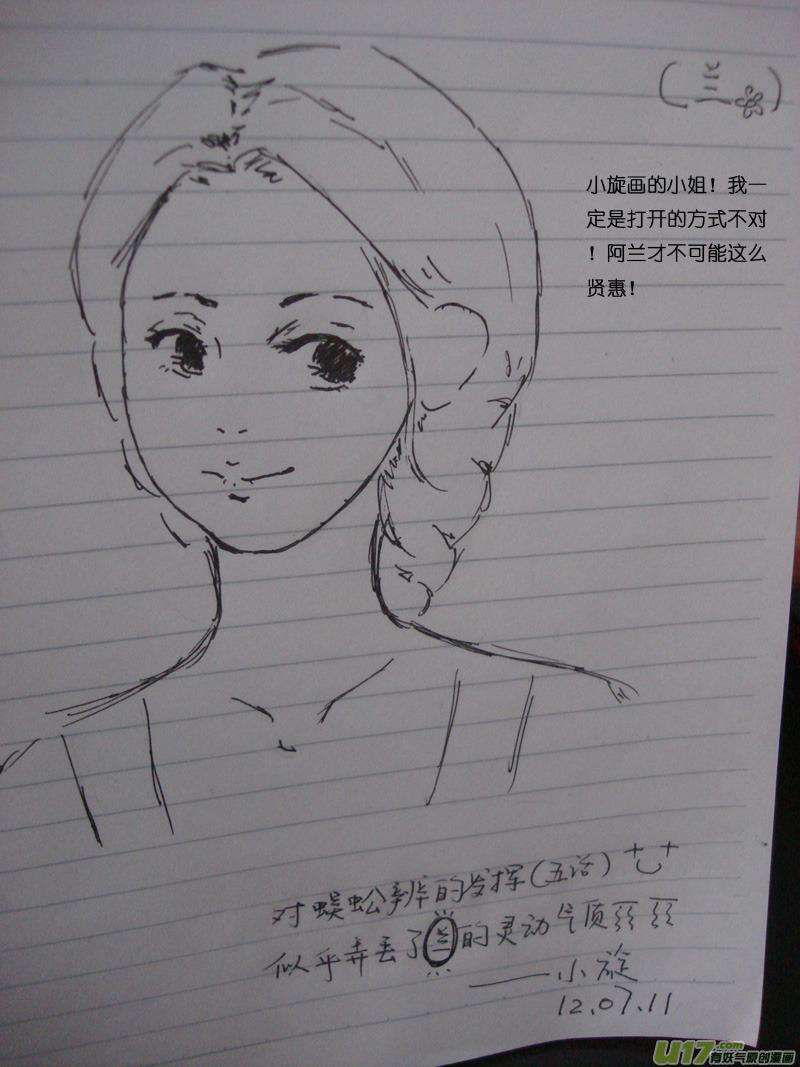 小旋画的小姐！我一
定是打开的方式不对
！阿兰才不可能这么
贤惠！
对蜈蚣辫的发挥(五话)
似乎弄丢了兰的灵动气质
——小旋
12.07.11
U17.com
有妖气原创漫画